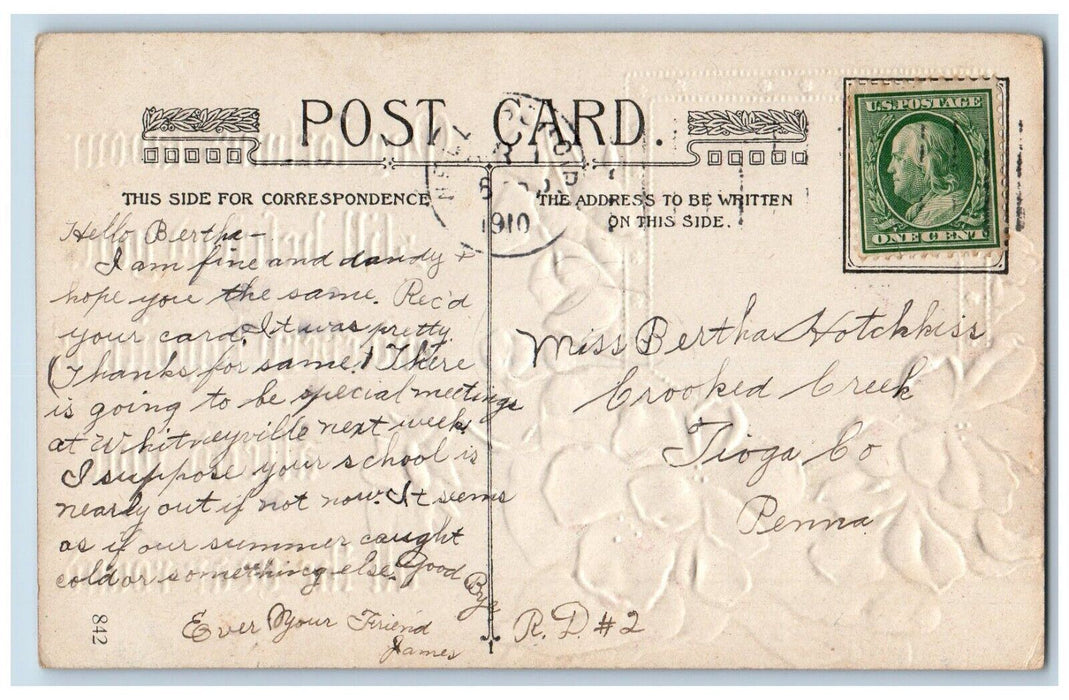 POST CARD.
THIS SIDE FOR CORRESPONDENCE
THE ADDRESS TO BE WRITTEN
ON THIS SIDE.
U.S. POSTAGE
ONE CENT
1910
Hello Bertha –
I am fine and dandy +
hope you the same. Rec'd
your card. It was pretty.
(Thanks for same.) There
is going to be special meetings
at Whitneyville next week.
I suppose your school is
nearly out if not now. It seems
as if our summer caught
cold or something else. Good
Bye
Ever Your Friend
James
842
Miss Bertha Hotchkiss
Crooked Creek
Tioga Co
Penna
R. D. #2